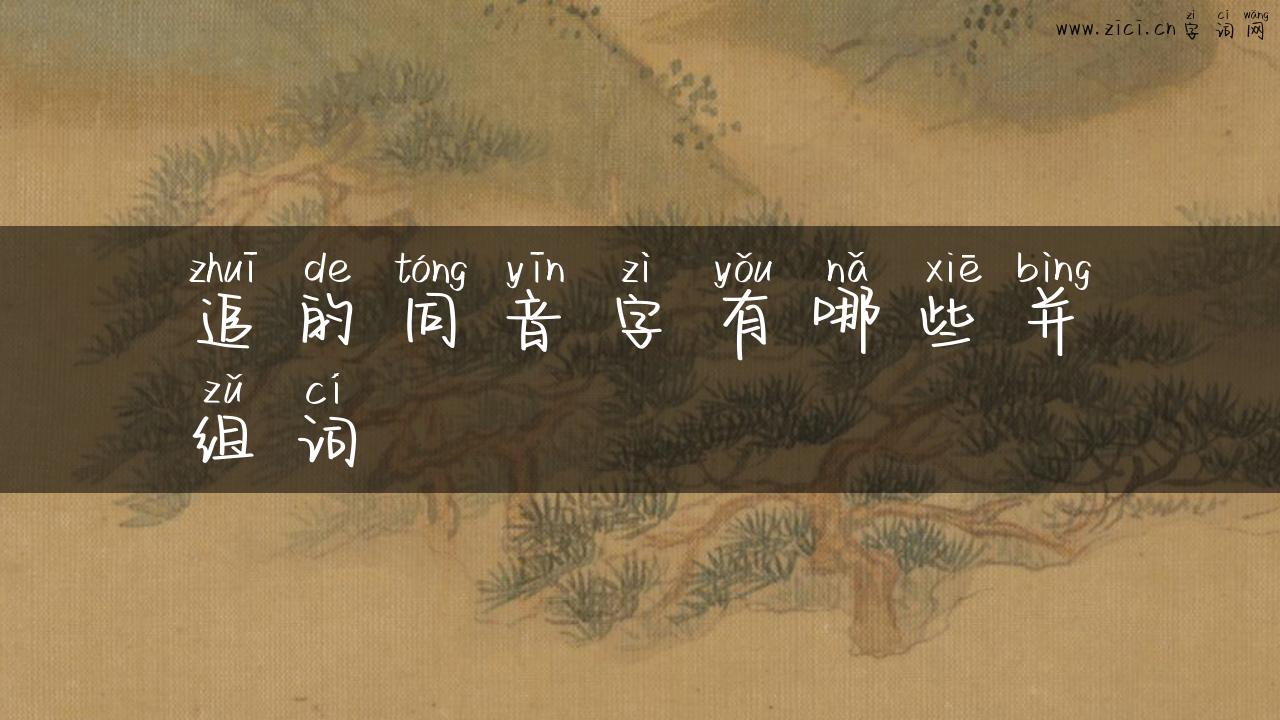 zì cí wǎng
www.zici.cn 字词网
zhuī de tóng yīn zì yǒu nǎ xiē bìng
追的同音字有哪些并
zǔ cí
组词